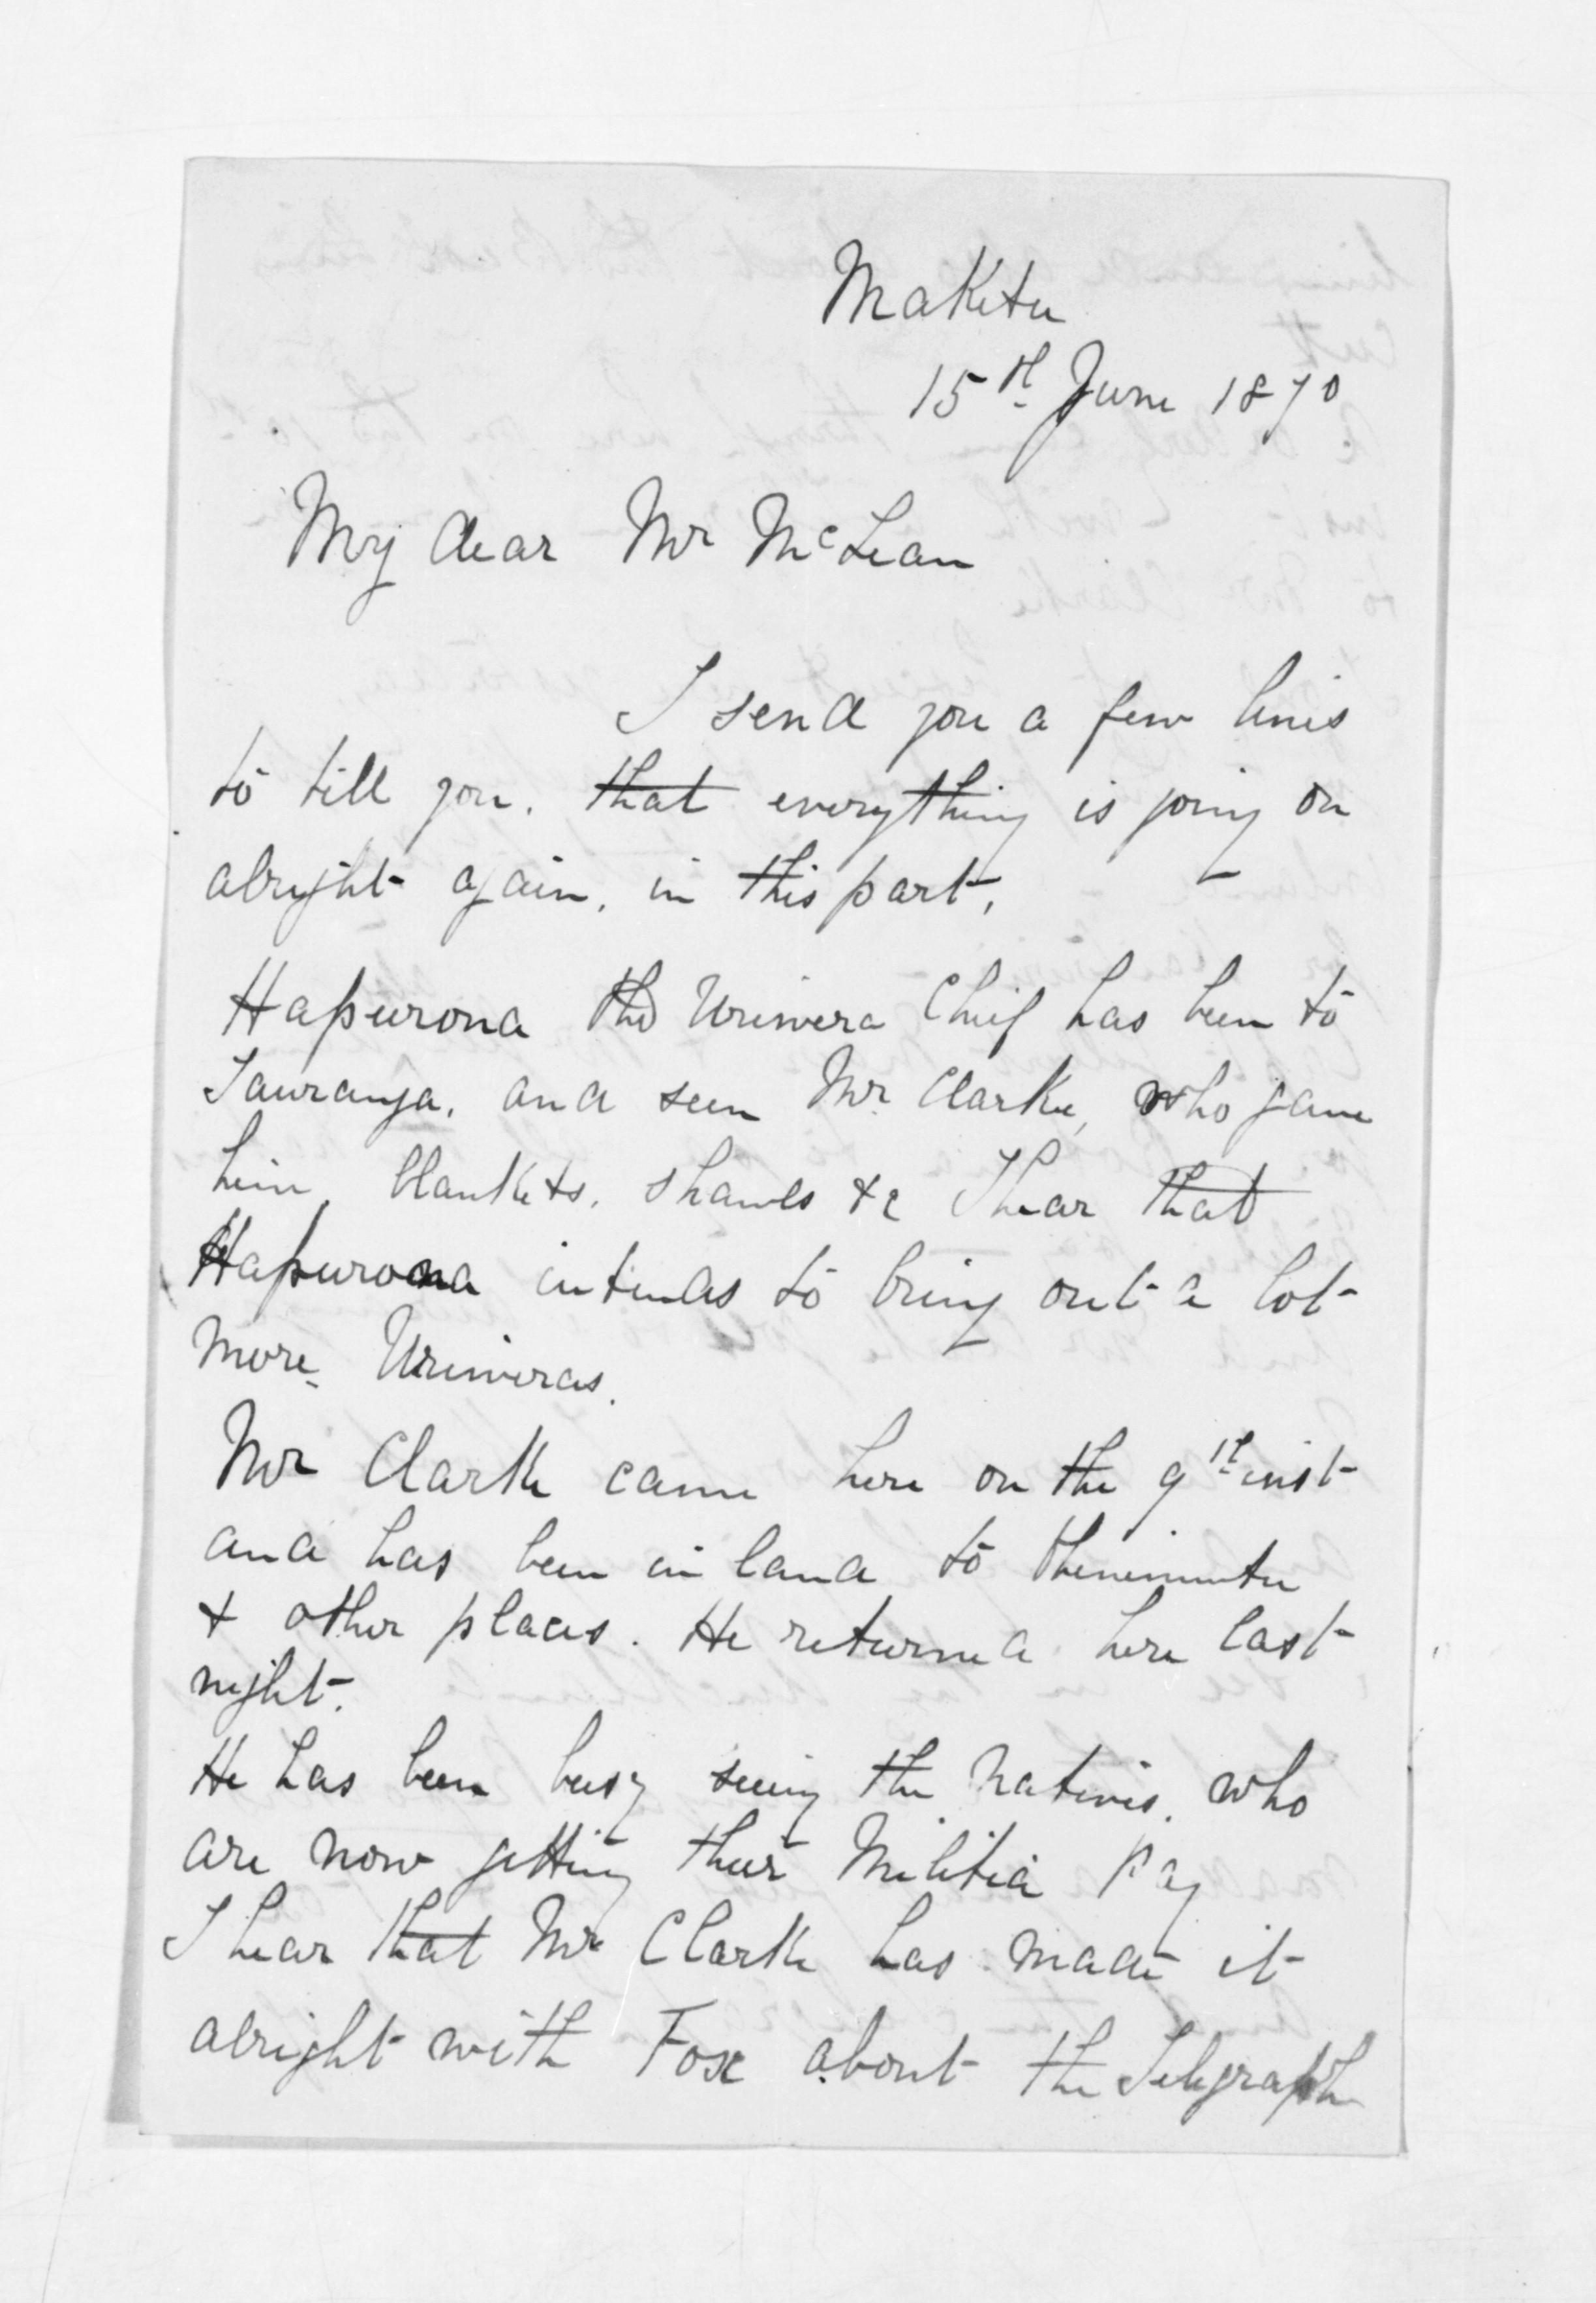 Maketu
15th June 1870
My dear Mr McLean
I send you a few lines
to tell you. that everything is going on
alright again, in this part,
Hapurona the Uriwera Chief has been to
Tauranga. and seen Mr Clarke, who gave
him, blankets. shawls &c I hear that
Hapurona intends to bring out a lot
more Uriweras.
Mr Clarke came here on the 9th inst
and has been in land to Ohinemutu
& other places. He returned here last
night.
He has been busy seeing the Natives. who
are now getting their Militia Pay
I hear that Mr Clarke has made it
alright with Fox about the Telegraph